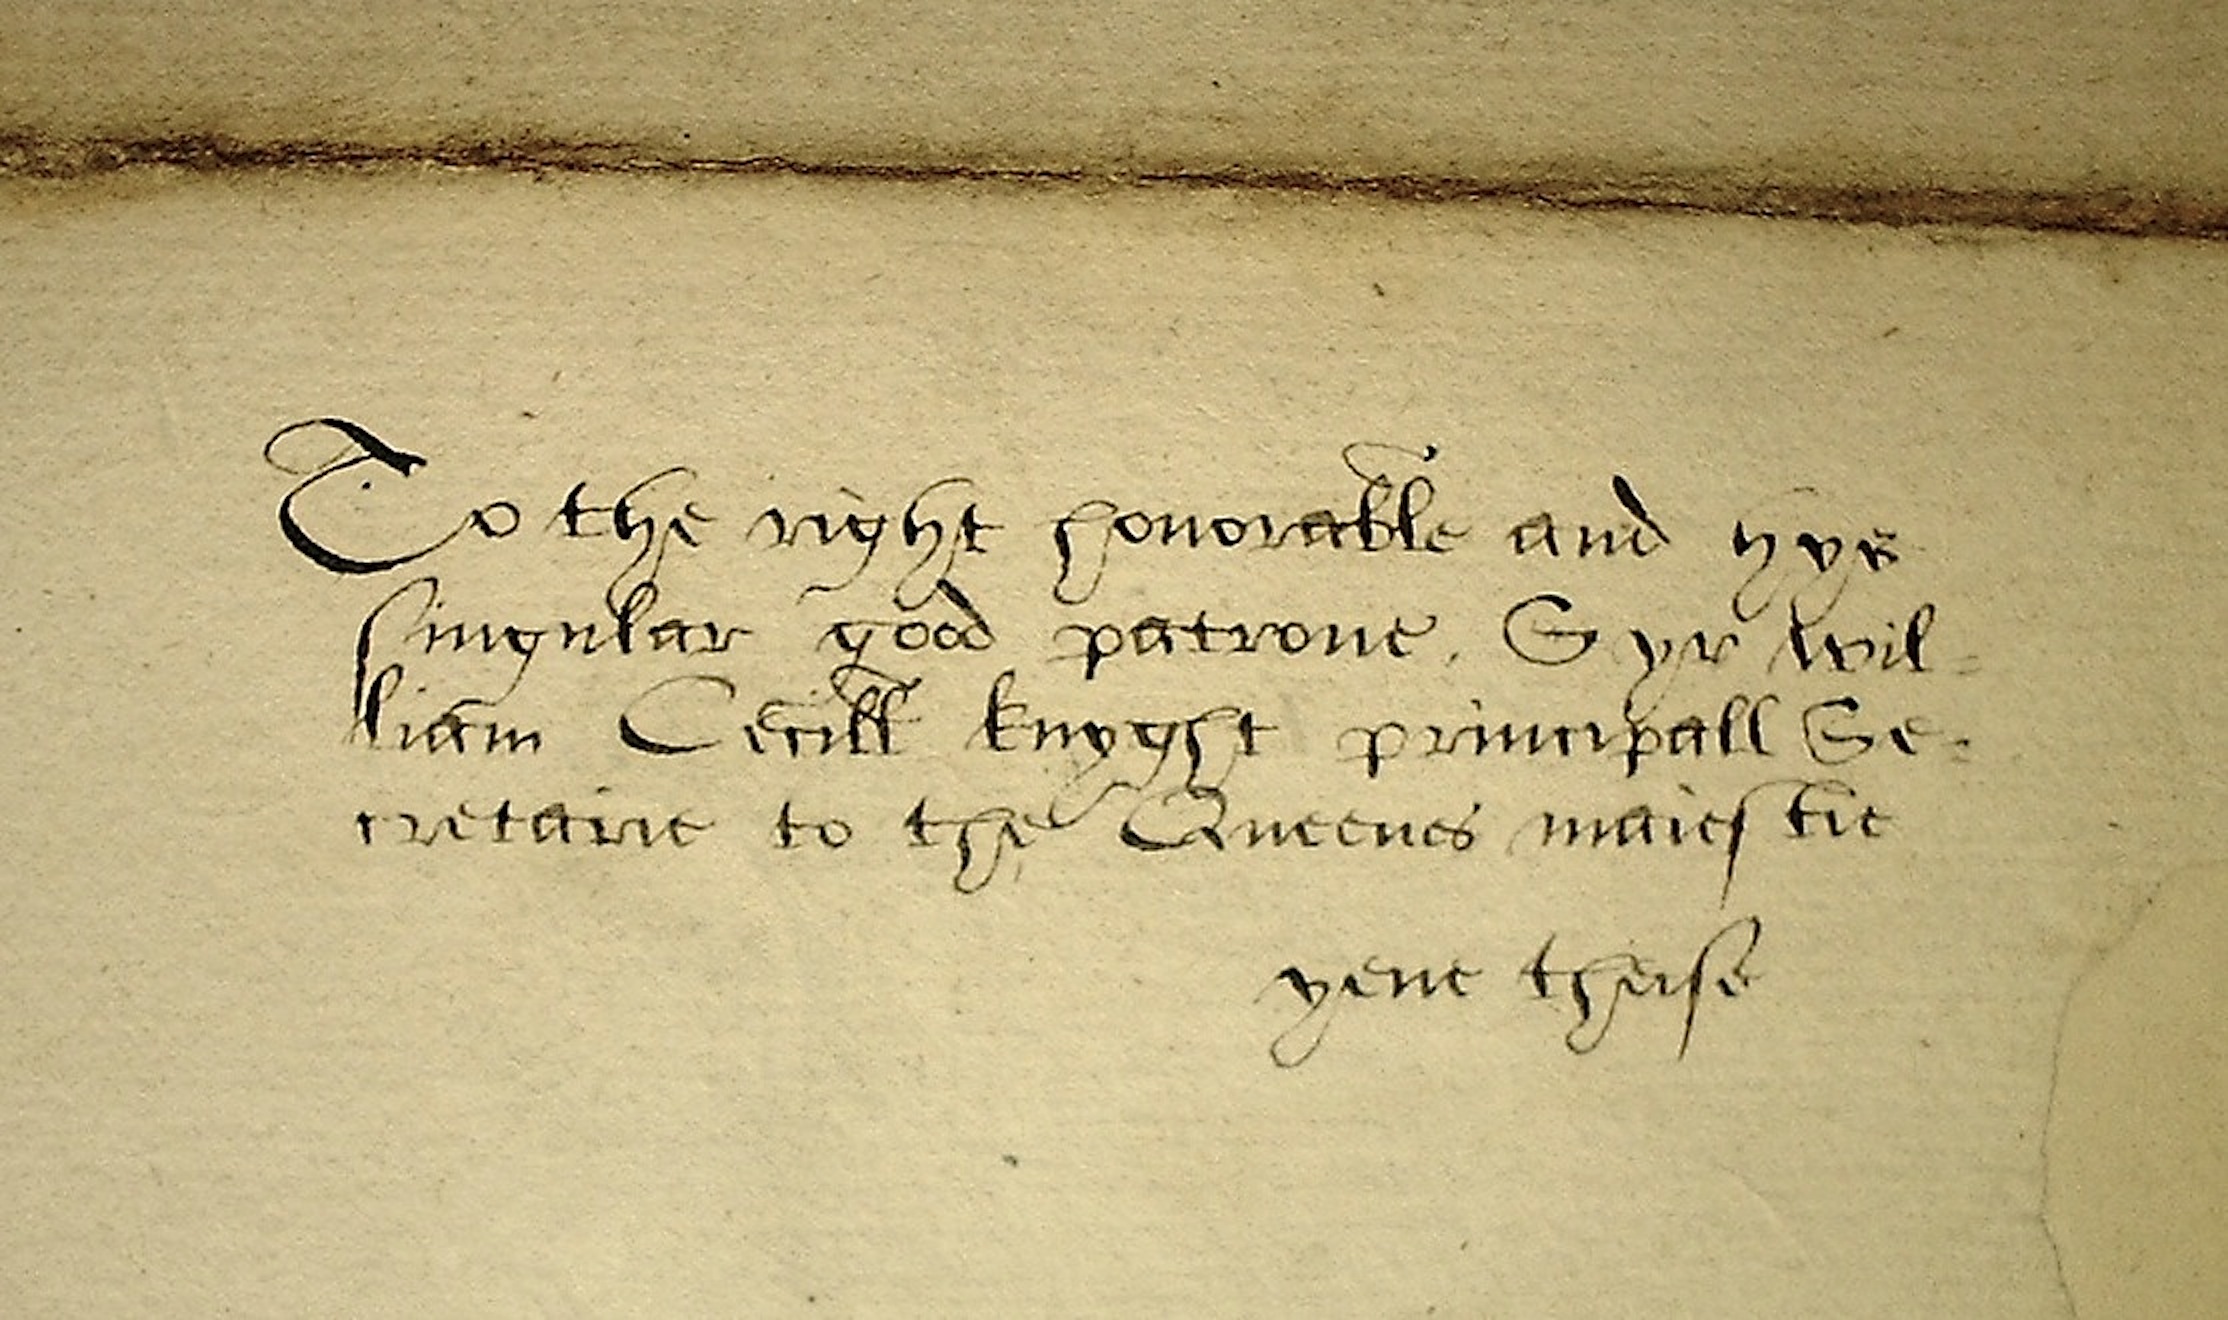 To the right honorable and hys
singular good patrone. Syr Wil=
liam Cecill knyght principall Se=
cretarie to the Queenes maiestie
yeue theise